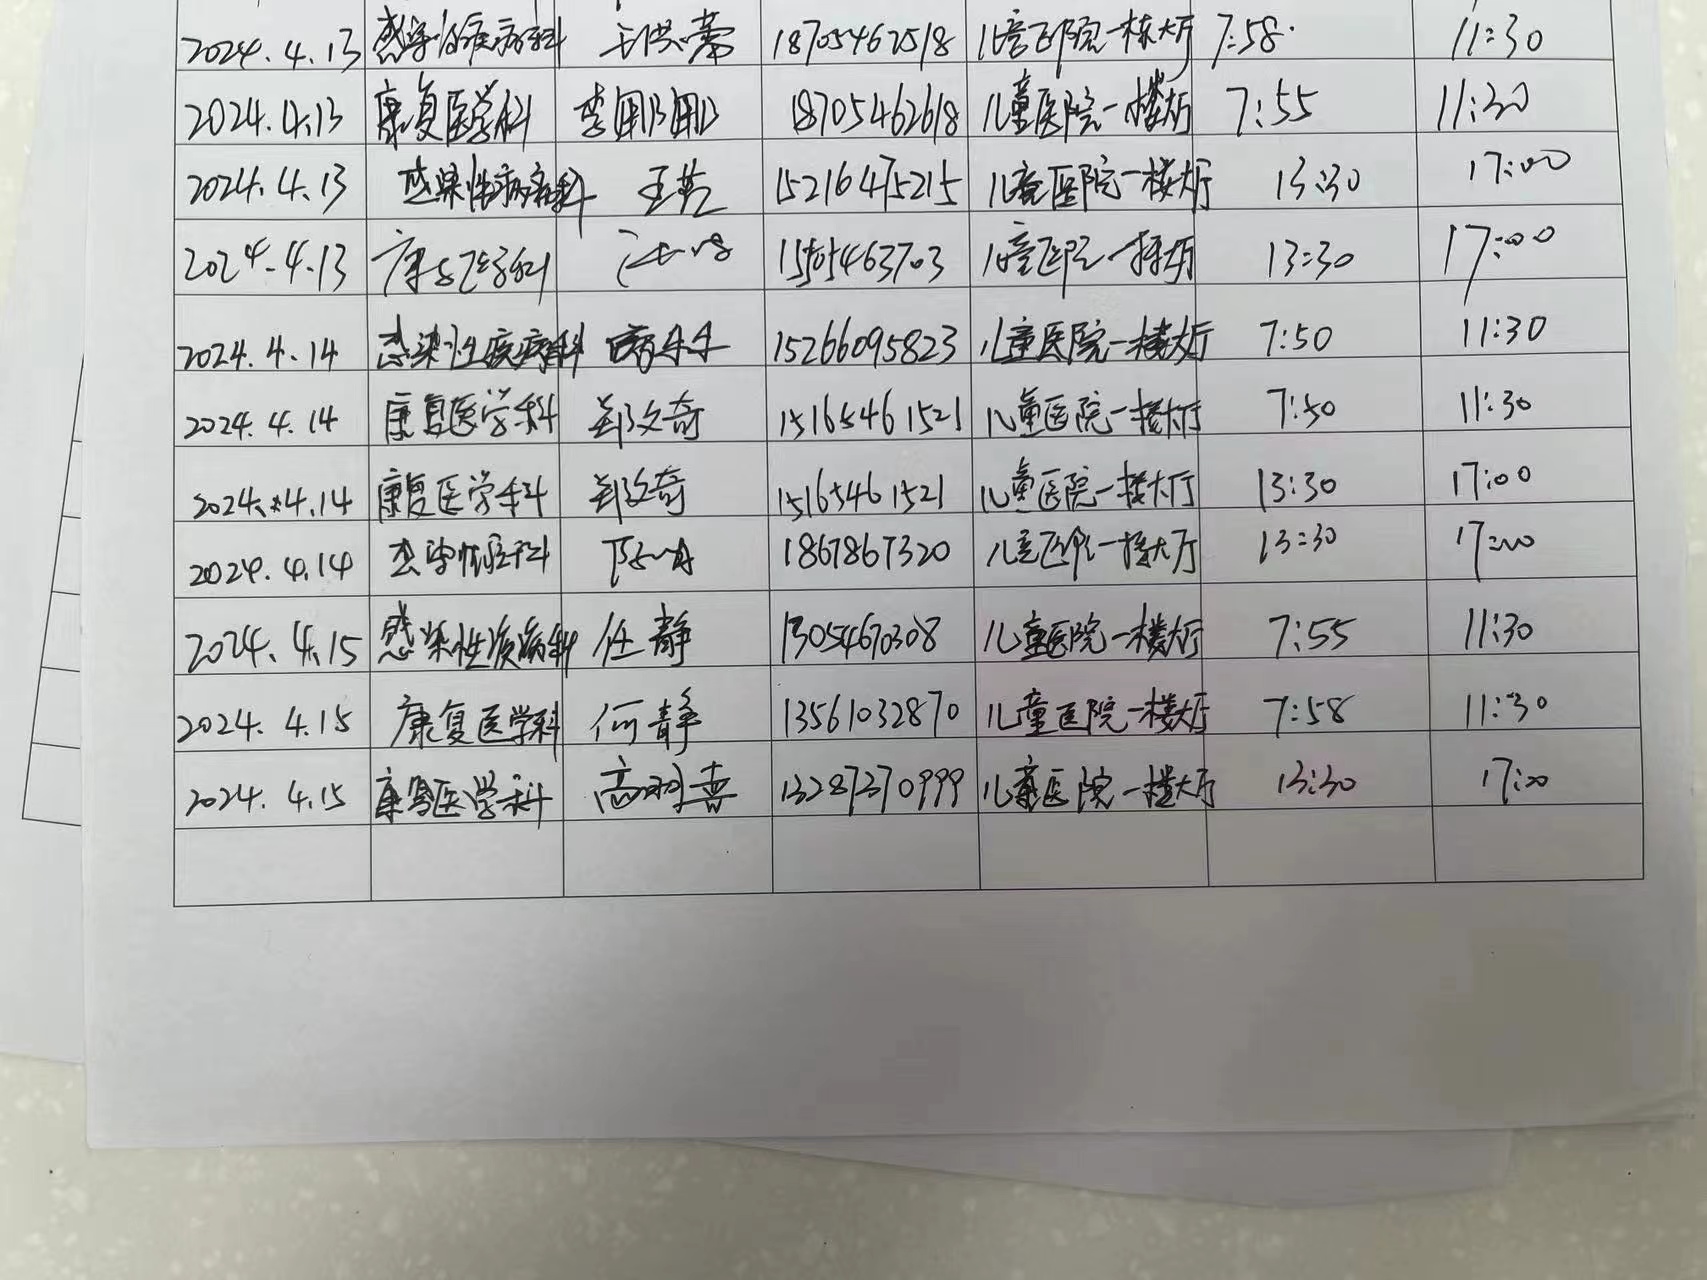 2024.4.13 感染性疾病科 王洪蕾 18705462518 儿童医院一楼大厅 7:58 11:30
2024.4.13 康复医学科 李朋朋 18705462618 儿童医院一楼大厅 7:55 11:30
2024.4.13 感染性疾病科 王艺 15216475215 儿童医院一楼大厅 13:30 17:00
2024.4.13 康复医学科 15054463703 儿童医院一楼大厅 13:30 17:00
2024.4.14 感染性疾病科 15266095823 儿童医院一楼大厅 7:50 11:30
2024.4.14 康复医学科 郑文奇 15165461521 儿童医院一楼大厅 7:50 11:30
2024.4.14 康复医学科 郑文奇 15165461521 儿童医院一楼大厅 13:30 17:00
2024.4.14 感染性疾病科 1867867320 儿童医院一楼大厅 13:30 17:00
2024.4.15 感染性疾病科 任静 13054670308 儿童医院一楼大厅 7:55 11:30
2024.4.15 康复医学科 何静 13561032870 儿童医院一楼大厅 7:58 11:30
2024.4.15 康复医学科 高明喜 13287370999 儿童医院一楼大厅 13:30 17:00